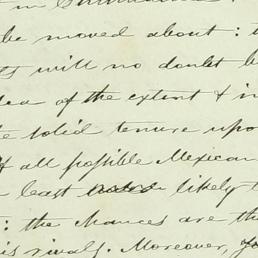 in
be moved about: t
will no doubt b
of the extent & in
solid tenure upo
of all possible Mexican
least likely t
: the chances are th
rivals. Moreover,